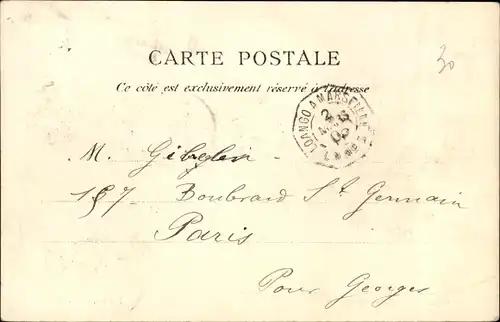 30
CARTE POSTALE
Ce côté est exclusivement réservé à l'adresse
LOANGO A MARSEILLE
2
L.L. Nº 2
M. Gibelin
157 Boulevard St Germain
Paris
Pour Georges